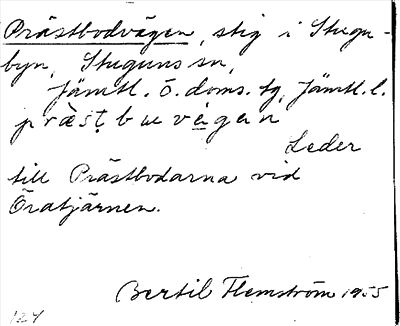 Prästbodvägen, stig i Stugu-
byn, Stuguns sn,
Jämtl. ö. doms. tg, Jämtl. l.
Leder
till Prästbodarna vid
Öratjärnen.
Bertil Flemström 1955
124